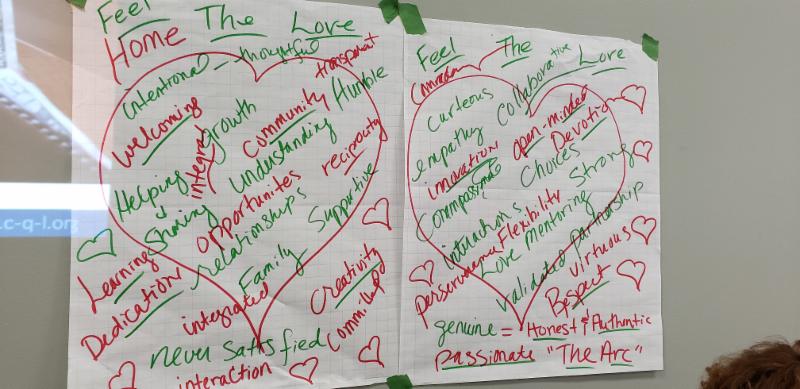 Feel The Love
Home
intentional - thoughtful
transparent
welcoming
integral
growth
community
Humble
understanding
Helping & Sharing
opportunites
reciprocity
relationships
Supportive
Learning
Family
Dedication
integrated
Creativity
never satisfied
interaction
Feel The Love
collaborative
Curteous
empathy
open-minded
Devotion
inovation
Choices
Strong
Commpassionate
Interactions
Flexibility
perserverance
Love mentoring
validated partnership
virtuous
Respect
genuine = Honest & Authntic
passionate "The Arc"
c-q-l.org